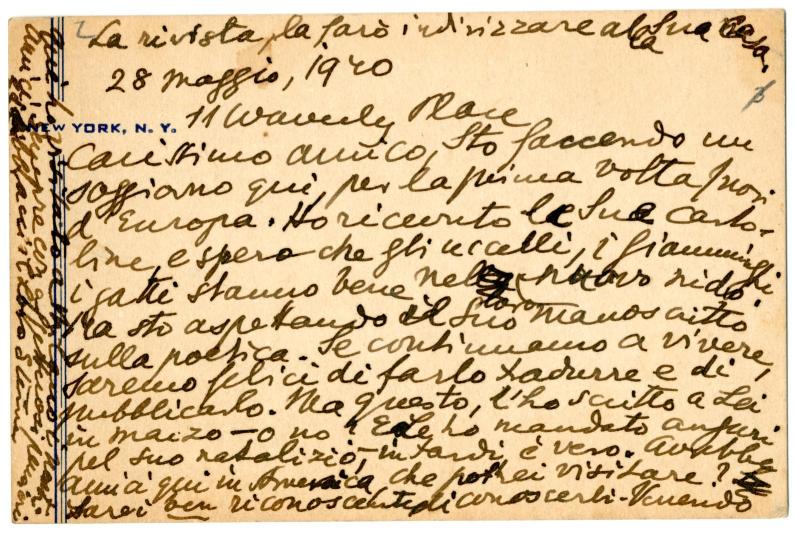 La rivista, la farò indirizzare alla Sua casa.
28 maggio, 1940
11 Waverly Place
NEW YORK, N. Y.
Carissimo amico, Sto faccendo un
soggiorno qui, per la prima volta fuori
d'Europa. Ho ricevuto le Sue carto-
line, e spero che gli uccelli, i
i gatti stanno bene nel loro nuovo nido.
Ma sto aspettando il Suo manoscritto
sulla poetica. Se continuamo a vivere,
saremo felici di farlo tradurre e di
pubblicarlo. Ma questo, l'ho scritto a Lei
in marzo - o no? E Le ho mandato auguri
pel suo natalizio, in tardi, è vero. Avrebbe
amici qui in America che potrei visitare?
Sarei ben riconoscente di conoscerli. Venendo
qui, ho